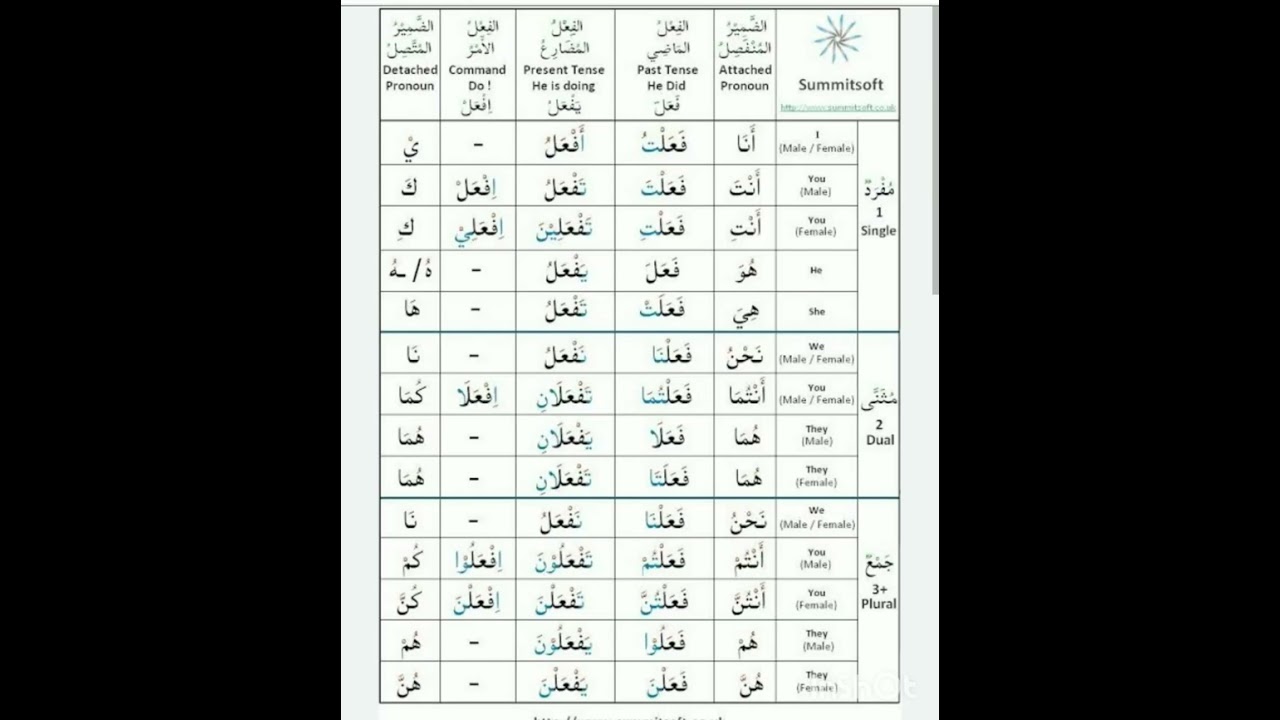 الضَّمِيْرُ الفِعْلُ الفِعْلُ الفِعْلُ الضَّمِيْرُ
المُتَّصِلُ الأَمْرُ المُضَارِعُ المَاضِي المُنْفَصِلُ
Detached Command Present Tense Past Tense Attached
Pronoun Do ! He is doing He Did Pronoun Summitsoft
اِفْعَلْ يَفْعَلُ فَعَلَ http://www.summitsoft.co.uk
يْ - أَفْعَلُ فَعَلْتُ أَنَا I (Male / Female)
كَ اِفْعَلْ تَفْعَلُ فَعَلْتَ أَنْتَ You (Male)
كِ اِفْعَلِيْ تَفْعَلِيْنَ فَعَلْتِ أَنْتِ You (Female)
مُفْرَدٌ
1
Single
هُ / ـهُ - يَفْعَلُ فَعَلَ هُوَ He
هَا - تَفْعَلُ فَعَلَتْ هِيَ She
نَا - نَفْعَلُ فَعَلْنَا نَحْنُ We (Male / Female)
كُمَا اِفْعَلَا تَفْعَلَانِ فَعَلْتُمَا أَنْتُمَا You (Male / Female)
مُثَنَّى
2
Dual
هُمَا - يَفْعَلَانِ فَعَلَا هُمَا They (Male)
هُمَا - تَفْعَلَانِ فَعَلَتَا هُمَا They (Female)
نَا - نَفْعَلُ فَعَلْنَا نَحْنُ We (Male / Female)
كُمْ اِفْعَلُوْا تَفْعَلُوْنَ فَعَلْتُمْ أَنْتُمْ You (Male)
جَمْعٌ
3+
Plural
كُنَّ اِفْعَلْنَ تَفْعَلْنَ فَعَلْتُنَّ أَنْتُنَّ You (Female)
هُمْ - يَفْعَلُوْنَ فَعَلُوْا هُمْ They (Male)
هُنَّ - يَفْعَلْنَ فَعَلْنَ هُنَّ They (Female)